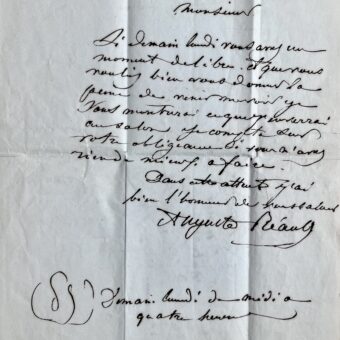 monsieur
Si demain lundi vous avez un
moment de libre et que vous
vouliez bien vous donner la
peine de venir me voir je
vous montrerai ce que j'enverrai
au salon je compte sur
votre obligeance si vous n'avez
rien de mieux a faire.
Dans attente j'ai
bien l'honneur de vous saluer
Auguste
Demain lundi de midi a
quatre heures